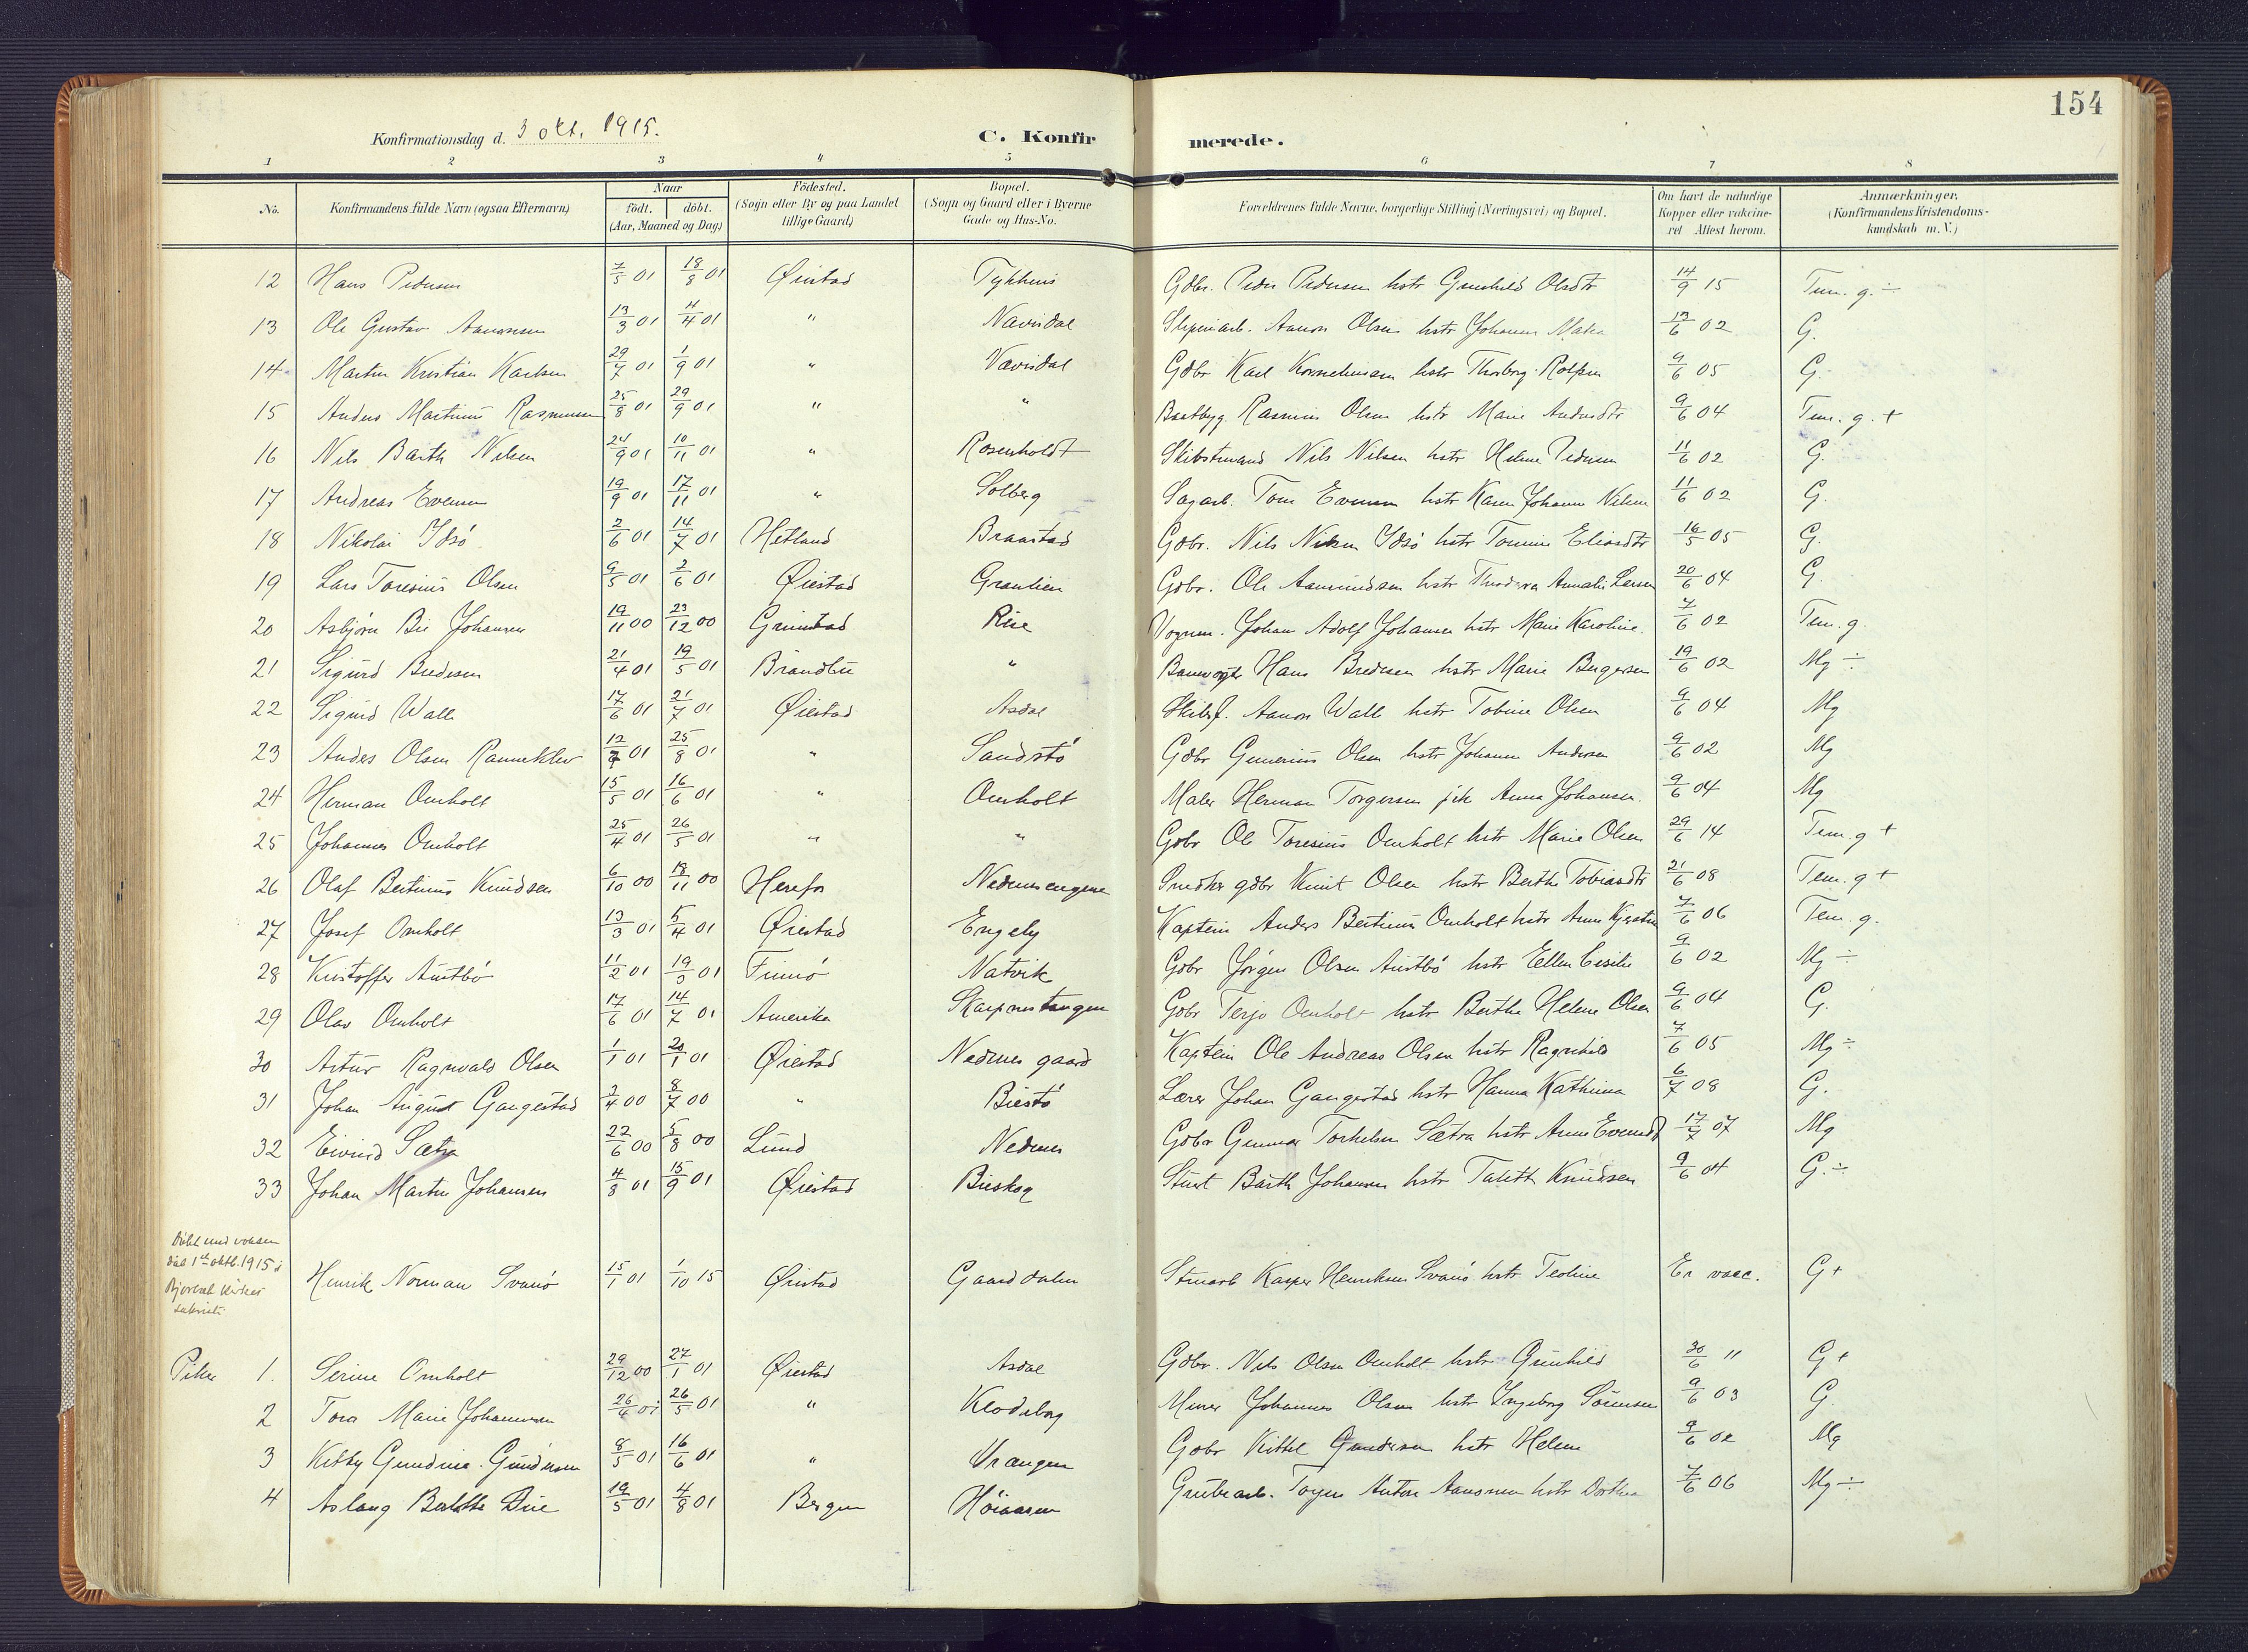 154
Konfirmationsdag d. 3 okt. 1915.
C. Konfirmerede.
1 2 3 4 5 6 7 8
No. Konfirmandens fulde Navn (ogsaa Efternavn) Naar födt. döbt. (Aar, Maaned og Dag) Födested. (Sogn eller By og paa Landet tillige Gaard) Bopæl. (Sogn og Gaard eller i Byerne Gade og Hus-No. Forældrenes fulde Navne, borgerlige Stilling (Næringsvei) og Bopæl. Om havt de naturlige Kopper eller vaccineret Attest herom. Anmærkninger. (Konfirmandens Kristendomskundskab m.V.)
12 Hans Pedersen 7/5 01 18/8 01 Øiestad Gdbr. Peder Pedersen hstr Gunhild Olsdtr 14/9 15 Tem. g. ÷
13 Ole Gustav Aanonsen 13/3 01 4/4 01 " Navisdal Aanon Olsen hstr Johanne 12/6 02 G.
14 Martin Kristian Karlsen 29/7 01 1/9 01 " Navisdal Gdbr Karl Korneliussen hstr Thorborg 9/6 05 G.
15 Anders Martinus Rasmussen 25/8 01 29/9 01 " " Baatbyg. Rasmus Olsen hstr Marie Andersdtr 9/6 04 Tem. g. +
16 Nils Barth Nilsen 24/9 01 10/11 01 " Rosenholdt Skibstmand Nils Nilsen hstr Helene Pedersen 11/6 02 G.
17 Andreas Evensen 19/9 01 17/11 01 " Solberg Sagarb. Tom Evensen hstr Karen Johanne Nilsen 11/6 02 G.
18 Nikolai Idsö 2/6 01 14/7 01 Hetland Braastad Gdbr. Nils Nilsen Idsö hstr Tomine Eliasdtr 16/5 05 G.
19 Lars Toresius Olsen 9/5 01 2/6 01 Øiestad Granlien Gdbr. Ole Aanundsen hstr Theodora Annalie Larsen 20/6 04 G.
20 Asbjörn Bie Johansen 19/11 00 23/12 00 Grimstad Rise Vognm. Johan Adolf Johansen hstr Marie Karoline 7/6 02 Tem. g.
21 Sigurd Bredesen 21/4 01 19/5 01 Brandbu " Banevogter Hans Bredesen hstr Marie Bergersen 19/6 02 Mg ÷
22 Sigurd Walle 17/6 01 21/7 01 Øiestad Asdal Skibsf. Aanon Walle hstr Tobine Olsen 9/6 04 Mg
23 Anders Olsen Ranneklev 01 25/8 01 " Sandstö Gdbr Gunerius Olsen hstr Johanne Andersen 9/6 02 Mg
24 Herman Omholt 15/5 01 16/6 01 " Omholt Maler Herman Torgersen pike Anna Johansen. 9/6 04 Mg
25 Johannes Omholt 25/4 01 26/5 01 " " Gdbr Ole Toresius Omholt hstr Marie Olsen 29/6 14 Tem. g +
26 Olaf Bertinus Knudsen 6/10 00 18/11 00 Herefos Nedenesengene Snedker gdbr Knut Olsen hstr Berthe Tobiasdtr 21/6 08 Tem. g +
27 Josef Omholt 13/3 01 5/4 01 Øiestad Engely Kaptein Anders Bertinus Omholt hstr Anne Kjerstine 7/6 06 Tem. g.
28 Kristoffer Austbö 11/2 01 19/3 01 Finnö Natvik Gdbr Jörgen Olsen Austbö hstr Ellen Cecilie 9/6 02 Mg ÷
29 Olav Omholt 17/6 01 14/7 01 Amerika Skarpnestangen Gdbr Terje Omholt hstr Berthe Helene Olsen 9/6 04 G.
30 Artur Ragnvald Olsen 1/1 01 20/1 01 Øiestad Nedenes gaard Kaptein Ole Andreas Olsen hstr Ragnhild 7/6 05 Mg ÷
31 Johan August Gangestad 2/4 00 8/7 00 " Biestö Lærer Johan Gangestad hstr Hanna Kathrina 6/7 08 G.
32 Eivind Sætra 22/6 00 5/8 00 Lund Nedenes Gdbr Gunnar Torkelsen Sætra hstr Anne Evensdt 17/7 07 Mg
33 Johan Martin Johansen 4/8 01 15/9 01 Øiestad Bieskog Stuert Barth Johansen hstr Talette Knudsen 9/6 04 G. ÷
Döbt ved voksen
daab 1st oktb. 1915 i
Bjorbæk kirkes
sakristi
Henrik Norman Svanö 15/1 01 1/10 15 Øiestad Gaarddalen Kasper Henriksen Svanö hstr Teoline Er vacc. G +
Piker 1. Serine Omholt 29/12 00 27/1 01 Øiestad Asdal Gdbr. Nils Olsen Omholt hstr Gunhild 30/6 11 G +
2 Tora Marie Johannesen 26/4 01 26/5 01 " Klodeborg Minør Johannes Olsen hstr Ingeborg Sörensen 9/6 03 G.
3 Kitty Gundine Gundersen 8/5 01 16/6 01 " Vrangen Gdbr Kittel Gundersen hstr Helene 9/6 02 Mg
4 Aslaug Bie 19/5 01 4/8 01 Bergen Höiaasen Grubearb. Anton Aanonsen hstr Dorthea 7/6 06 Mg ÷